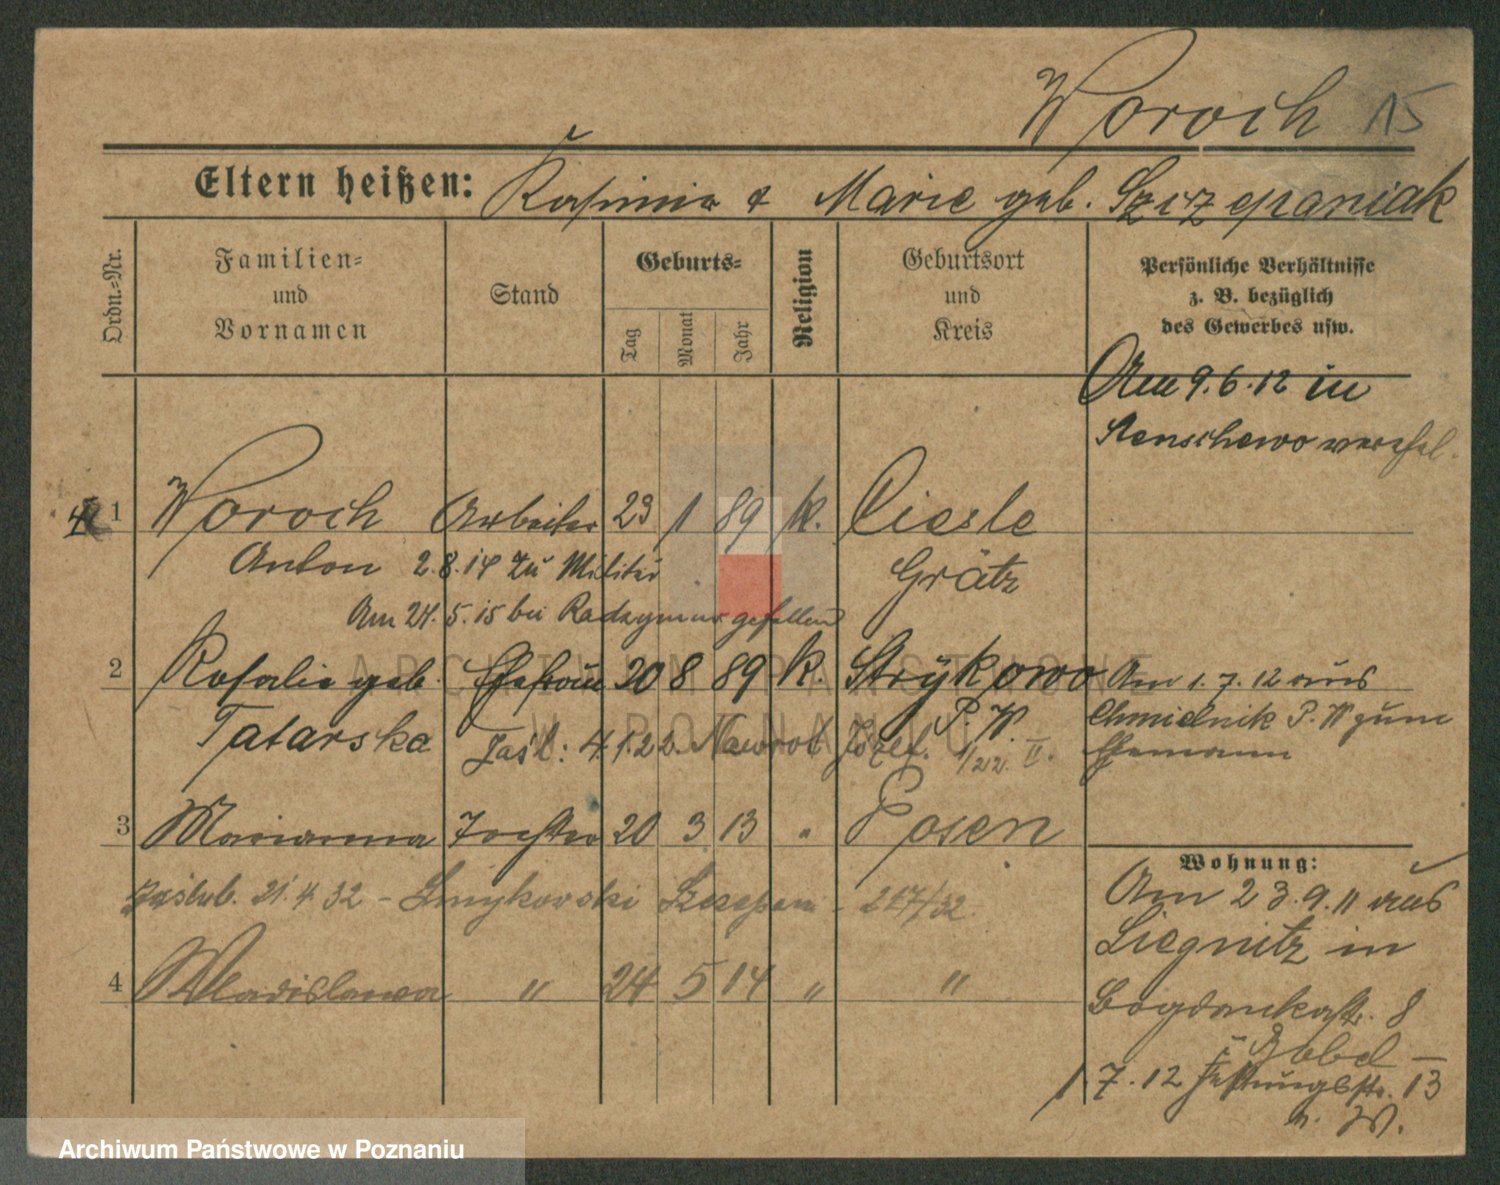 Woroch 15
Eltern heißen: Kasimir & Marie geb. Szczepaniak
Ordn.-Nr.
Familien-
und
Vornamen
Stand
Geburts-
Tag
Monat
Jahr
Religion
Geburtsort
und
Kreis
Persönliche Verhältnisse
z. B. bezüglich
des Gewerbes usw.
Am 9.6.12 in
verehel.
1 Woroch Arbeiter 23 1 89 k. Ciesle
Anton 2.8.14 zu Militär Grätz
Am 24.5.15 bei Radzymno gefallen
2 Rosalie geb. Ehefrau 20 8 89 k. Strykowo Am 1.7.12 aus
Tatarska P. W. Chmielnik P. W zum
Zaśl: 4.1.22. Nawrot Józef. 1/22. II. Ehemann
3 Marianna Tochter 20 3 13 " Posen
Wohnung:
Zaślub. 21.4.32 - Szczepan - 217/32
Am 23.9.11 aus
Liegnitz in
4 Wladislawa " 24 5 14 " "
Bogdankastr. 8
1.7.12 Festungsstr. 13
ARCHIWUM PAŃSTWOWE
W POZNANIU
Archiwum Państwowe w Poznaniu